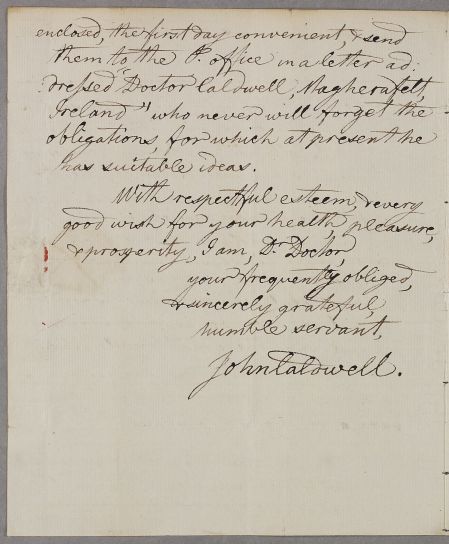 enclosed, the first day convenient, & send
them to the P. office in a letter ad:
:dressed "Doctor Caldwell, Magherafelt,
Ireland" who never will forget the
obligations, for which at present he
has suitable ideas.
With respectful esteem, & every
good wish for your health, pleasure,
& prosperity, I am, Dr. Doctor,
your frequently obliged,
& sincerely grateful,
humble servant,
John Caldwell.